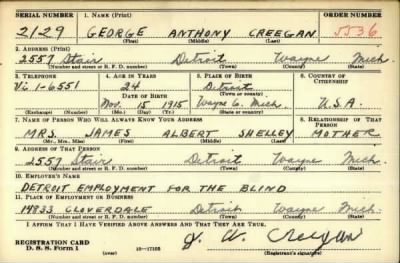 SERIAL NUMBER 1. NAME (Print) ORDER NUMBER
2129 GEORGE ANTHONY CREEGAN 5536
(First) (Middle) (Last)
2. ADDRESS (Print)
2557 Stair Detroit Wayne Mich
(Number and street or R. F. D. number) (Town) (County) (State)
3. TELEPHONE 4. AGE IN YEARS 5. PLACE OF BIRTH 6. COUNTRY OF CITIZENSHIP
Vi 1-6551 24 Detroit
DATE OF BIRTH (Town or county)
Nov. 15 1915 Wayne Co. Mich. U.S.A.
(Exchange) (Number) (Mo.) (Day) (Yr.) (State or country)
7. NAME OF PERSON WHO WILL ALWAYS KNOW YOUR ADDRESS 8. RELATIONSHIP OF THAT PERSON
MRS. JAMES ALBERT SHELLEY MOTHER
(Mr., Mrs., Miss) (First) (Middle) (Last)
9. ADDRESS OF THAT PERSON
2557 Stair Detroit Wayne Mich.
(Number and street or R. F. D. number) (Town) (County) (State)
10. EMPLOYER'S NAME
DETROIT EMPLOYMENT FOR THE BLIND
11. PLACE OF EMPLOYMENT OR BUSINESS
14833 CLOVERDALE Detroit Wayne Mich
(Number and street or R. F. D. number) (Town) (County) (State)
I AFFIRM THAT I HAVE VERIFIED ABOVE ANSWERS AND THAT THEY ARE TRUE.
REGISTRATION CARD
D. S. S. Form 1 (over) 16—17105 (Registrant's signature)
Creegan